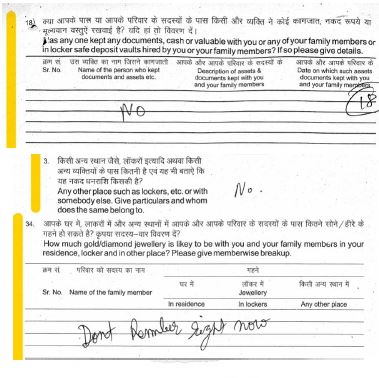 18. क्या आपके पास या आपके परिवार के सदस्यों के पास किसी और व्यक्ति ने कोई कागजात, नकद रूपये या
मूल्यवान वस्तुऐं रखवाई है? यदि हां तो विवरण दें।
Has any one kept any documents, cash or valuable with you or any of your family members or
in locker safe deposit vaults hired by you or your family members? If so please give details.
क्रम सं. उस व्यक्ति का नाम जिसने कागजातो आपके और आपके परिवार के सदस्यों के आपके और आपके परिवार के
Sr. No. Name of the person who kept Description of assets & Date on which such assets
documents and assets etc. documents kept with you documents kept with you
and your family members and your family members
NO 18
3. किसी अन्य स्थान जैसे, लॉकरों इत्यादि अथवा किसी
अन्य व्यक्तियों के पास कितनी है एवं यह भी बताऐं कि
यह नकद धनराशि किसकी है?
Any other place such as lockers, etc. or with
somebody else. Give particulars and whom
does the same belong to.
No.
34. आपके घर में, लाकरों में और अन्य स्थानों में आपके और आपके परिवार के सदस्यों के पास कितने सोने / हीरे के
गहने हो सकते है? कृपया सदस्य-वार विवरण दें?
How much gold/diamond jewellery is likely to be with you and your family members in your
residence, locker and in other place? Please give memberwise breakup.
क्रम सं. परिवार को सदस्य का नाम गहने
घर में लॉकर में किसी अन्य स्थान में
Sr. No. Name of the family member Jewellery
In residence In lockers Any other place
Dont Remember right now